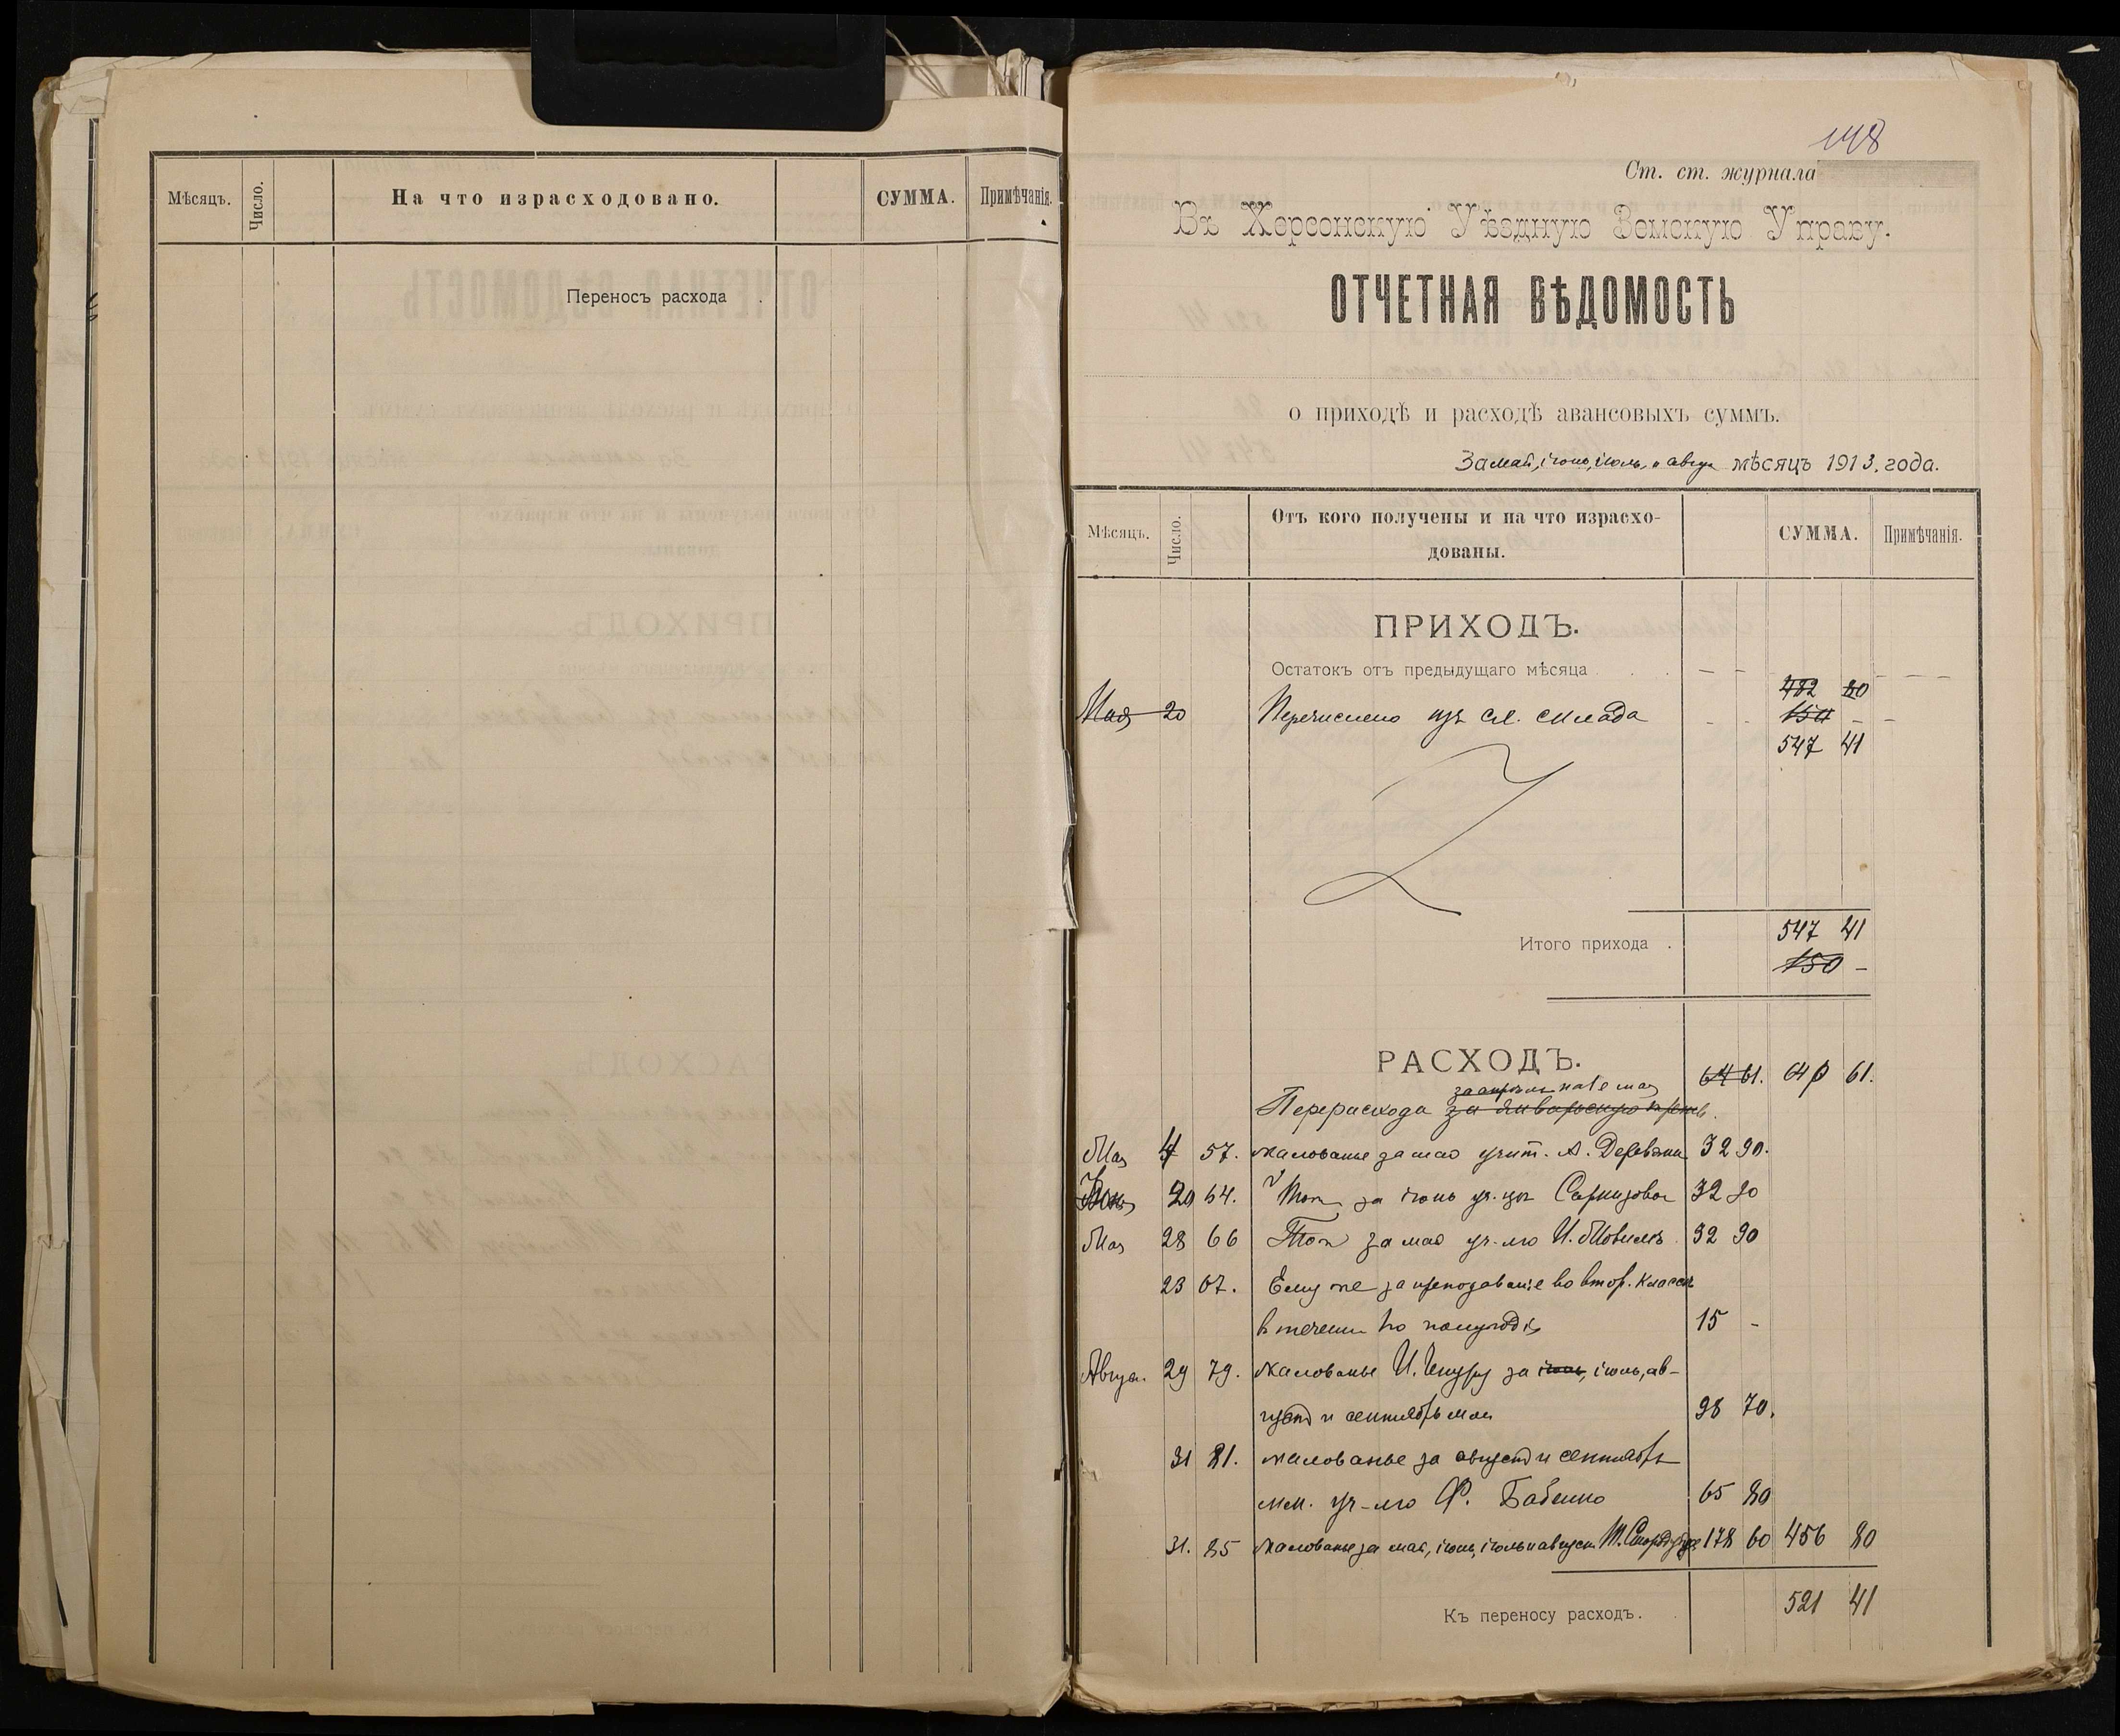 Мѣсяцъ.
Число.
На что израсходовано.
СУММА.
Примѣчанія.
Переносъ расхода .
148
Ст. ст. журнала
Въ Херсонскую Уѣздную Земскую Управу.
ОТЧЕТНАЯ ВѢДОМОСТЬ
о приходѣ и расходѣ авансовыхъ суммъ.
За май, іюнь, іюль, и авгус мѣсяцъ 1913. года.
Мѣсяцъ.
Число.
Отъ кого получены и на что израсхо-
дованы.
СУММА.
Примѣчанія.
ПРИХОДЪ.
Остатокъ отъ предыдущаго мѣсяца . . . — —
482 80
Мая 20 Перечислено изъ сл. склада - - 150 - -
547 41
547 41
Итого прихода .
150 -
РАСХОДЪ.
64 61. 64 61.
Перерасхода за январьскую
Мая 4 57. жалованье за май учит. А. 32 90.
20 64. за іюнь 32 90
Мая 28 66 за май уч-лю И. 32 90
23 67. Ему же за преподаваніе во втор. классѣ
въ теченіи 1го полугодія 15 -
Авгус. 29 79. жалованье И. за іюнь, іюль, ав-
густъ и сентябрь мм 98 70.
31 81. жалованье за августъ и сентябрь
мм. уч-лю Ф. Бабенко 65 80
31. 85 жалованье за май, іюнь, іюль и август 178 60 456 80
521 41
Къ переносу расходъ.